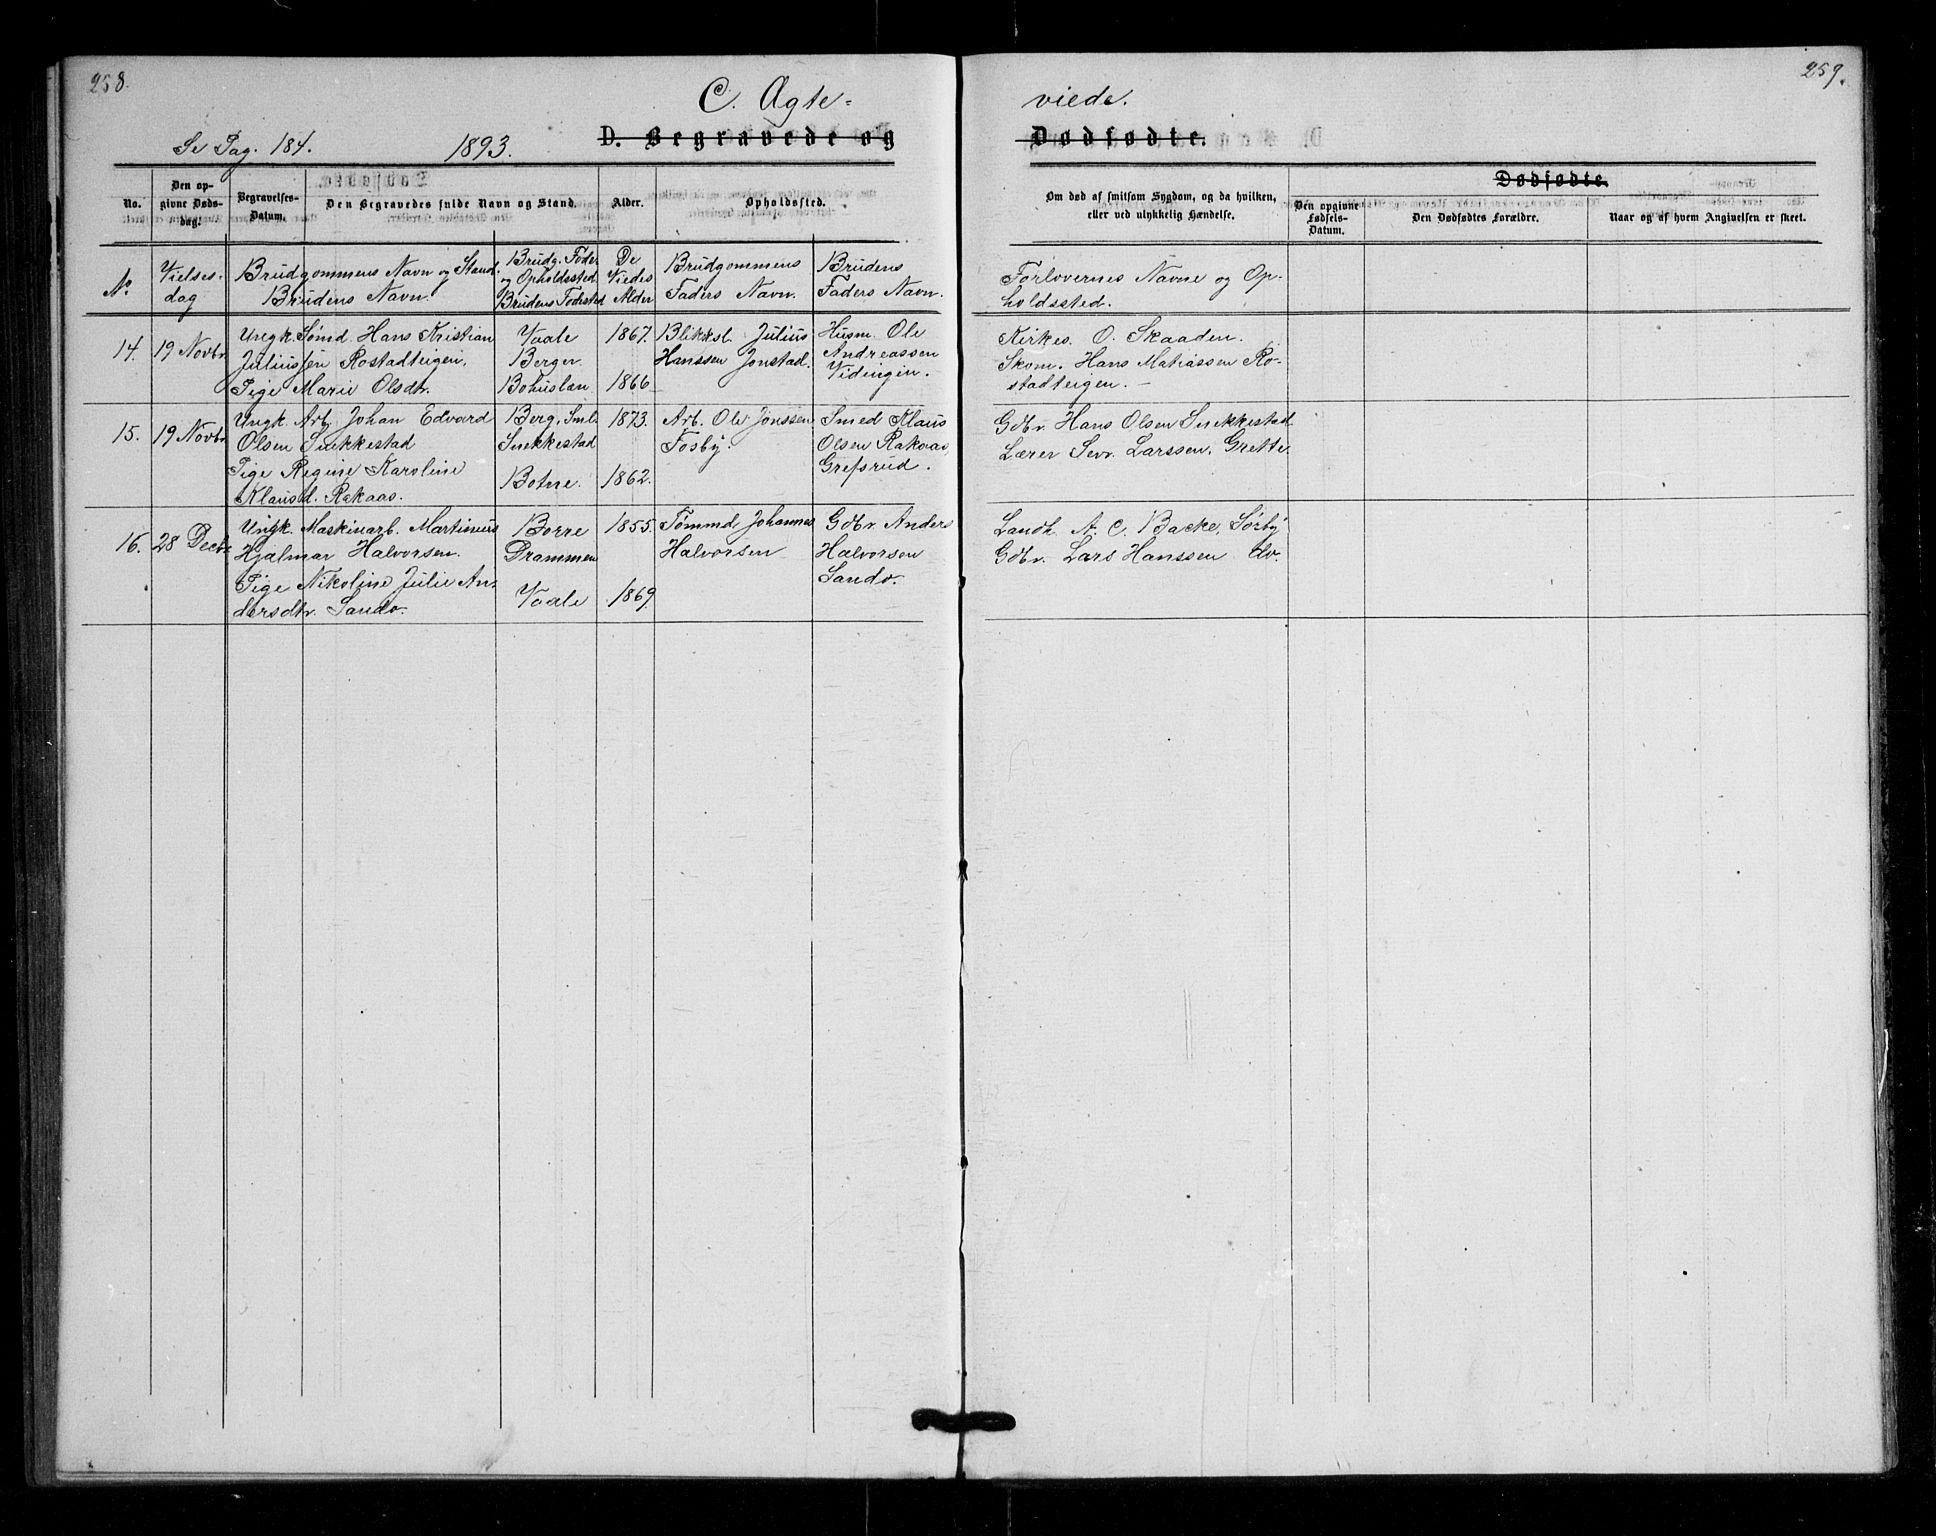 258.
259.
C. Ægte-
viede.
Se Pag. 184.
1893.
D. Begravede og
Dødfødte.
Dødfødte.
No.
Den op-
givne Døds-
dag.
Begravelses-
Datum.
Den Begravedes fulde Navn og Stand.
Alder.
Opholdssted.
Om død af smitsom Sygdom, og da hvilken,
eller ved ulykkelig Hændelse.
Den opgivne
Fødsels-
Datum.
Den Dødfødtes Forældre.
Naar og af hvem Angivelsen er skeet.
No
Vielses-
dag
Brudgommens Navn og Stand.
Brudens Navn.
Brudg. Føde-
og Opholdssted
Brudens Fødested
De
Viedes
Alder
Brudgommens
Faders Navn.
Brudens
Faders Navn.
Forlovernes Navne og Op-
holdssted.
14.
19 Novbr
Ungk. Sømd. Hans Kristian
Juliussen Rostadteigen.
Pige Marie Olsdtr.
Vaale
Berger
Bohuslæn
1867.
1866
Blikksl. Julius
Hanssen Jonstad.
Husm. Ole
Andreassen
Videngen.
Kirkes. O. Skaaden.
Skom. Hans Matiassen Ro-
stadteigen. -
15.
19 Novbr
Ungk. Arb. Johan Edvard
Olsen Snekkestad
Pige Regine Karoline
Klausd. Rakaas.
Berg, Sml.
Snekkestad
Botne.
1873.
1862.
Arb. Ole Jonssen
Fosby.
Smed Klaus
Olsen Rakaas,
Grefsrud.
Gdbr. Hans Olsen Snekkestad
Lærer Sevr. Larssen, Grette.
16.
28 Decbr
Ungk. Maskinarb. Martinius
Hjalmar Halvorsen.
Pige Nikoline Julie An-
dersdtr. Sando.
Borre
Drammen
Vaale
1855.
1869.
Tømmd. Johannes
Halvorsen
Gdbr. Anders
Halvorsen
Sando.
Landh. A. C. Backe, Sørby
Gdbr. Lars Hanssen do.